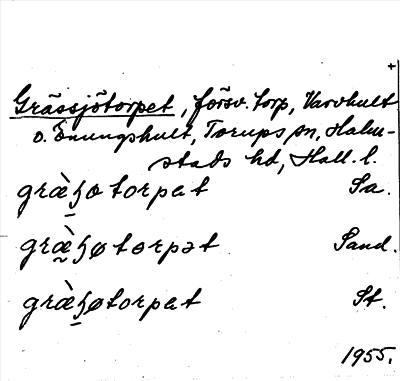 +
Grässjötorpet, försv. torp, Varvhult
o. Önnungshult, Torups sn, Halm-
stads hd, Hall. l.
græ̀ɧøtorpət Sa.
græ̀ɧøtorpət Sand.
græ̀ɧøtorpət St.
1955.